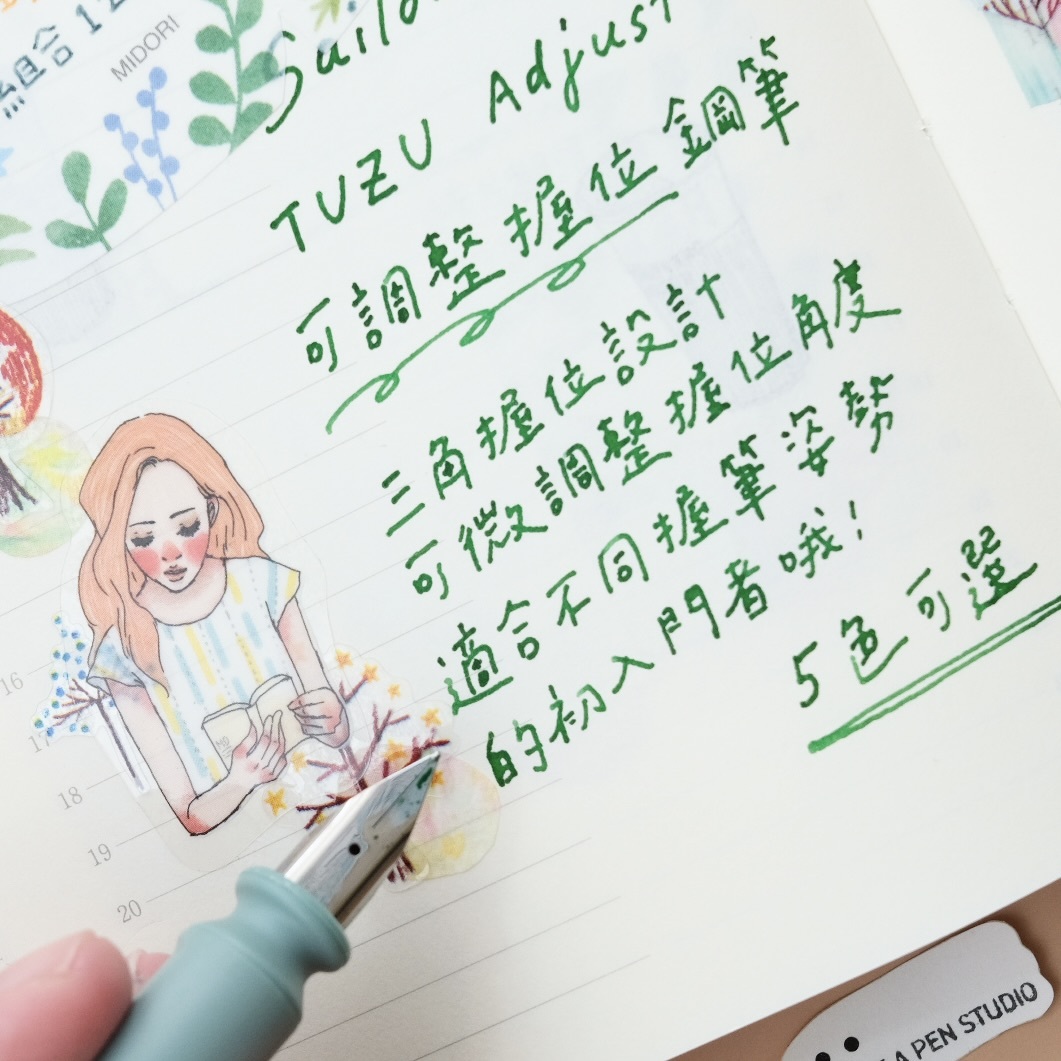 組合 1
MIDORI
Sailo
TUZU Adjust
可調整握位鋼筆
三角握位設計
可微調整握位角度
適合不同握筆姿勢
的初入門者哦!
5色可選
16
17
18
19
20
MD
A PEN STUDIO